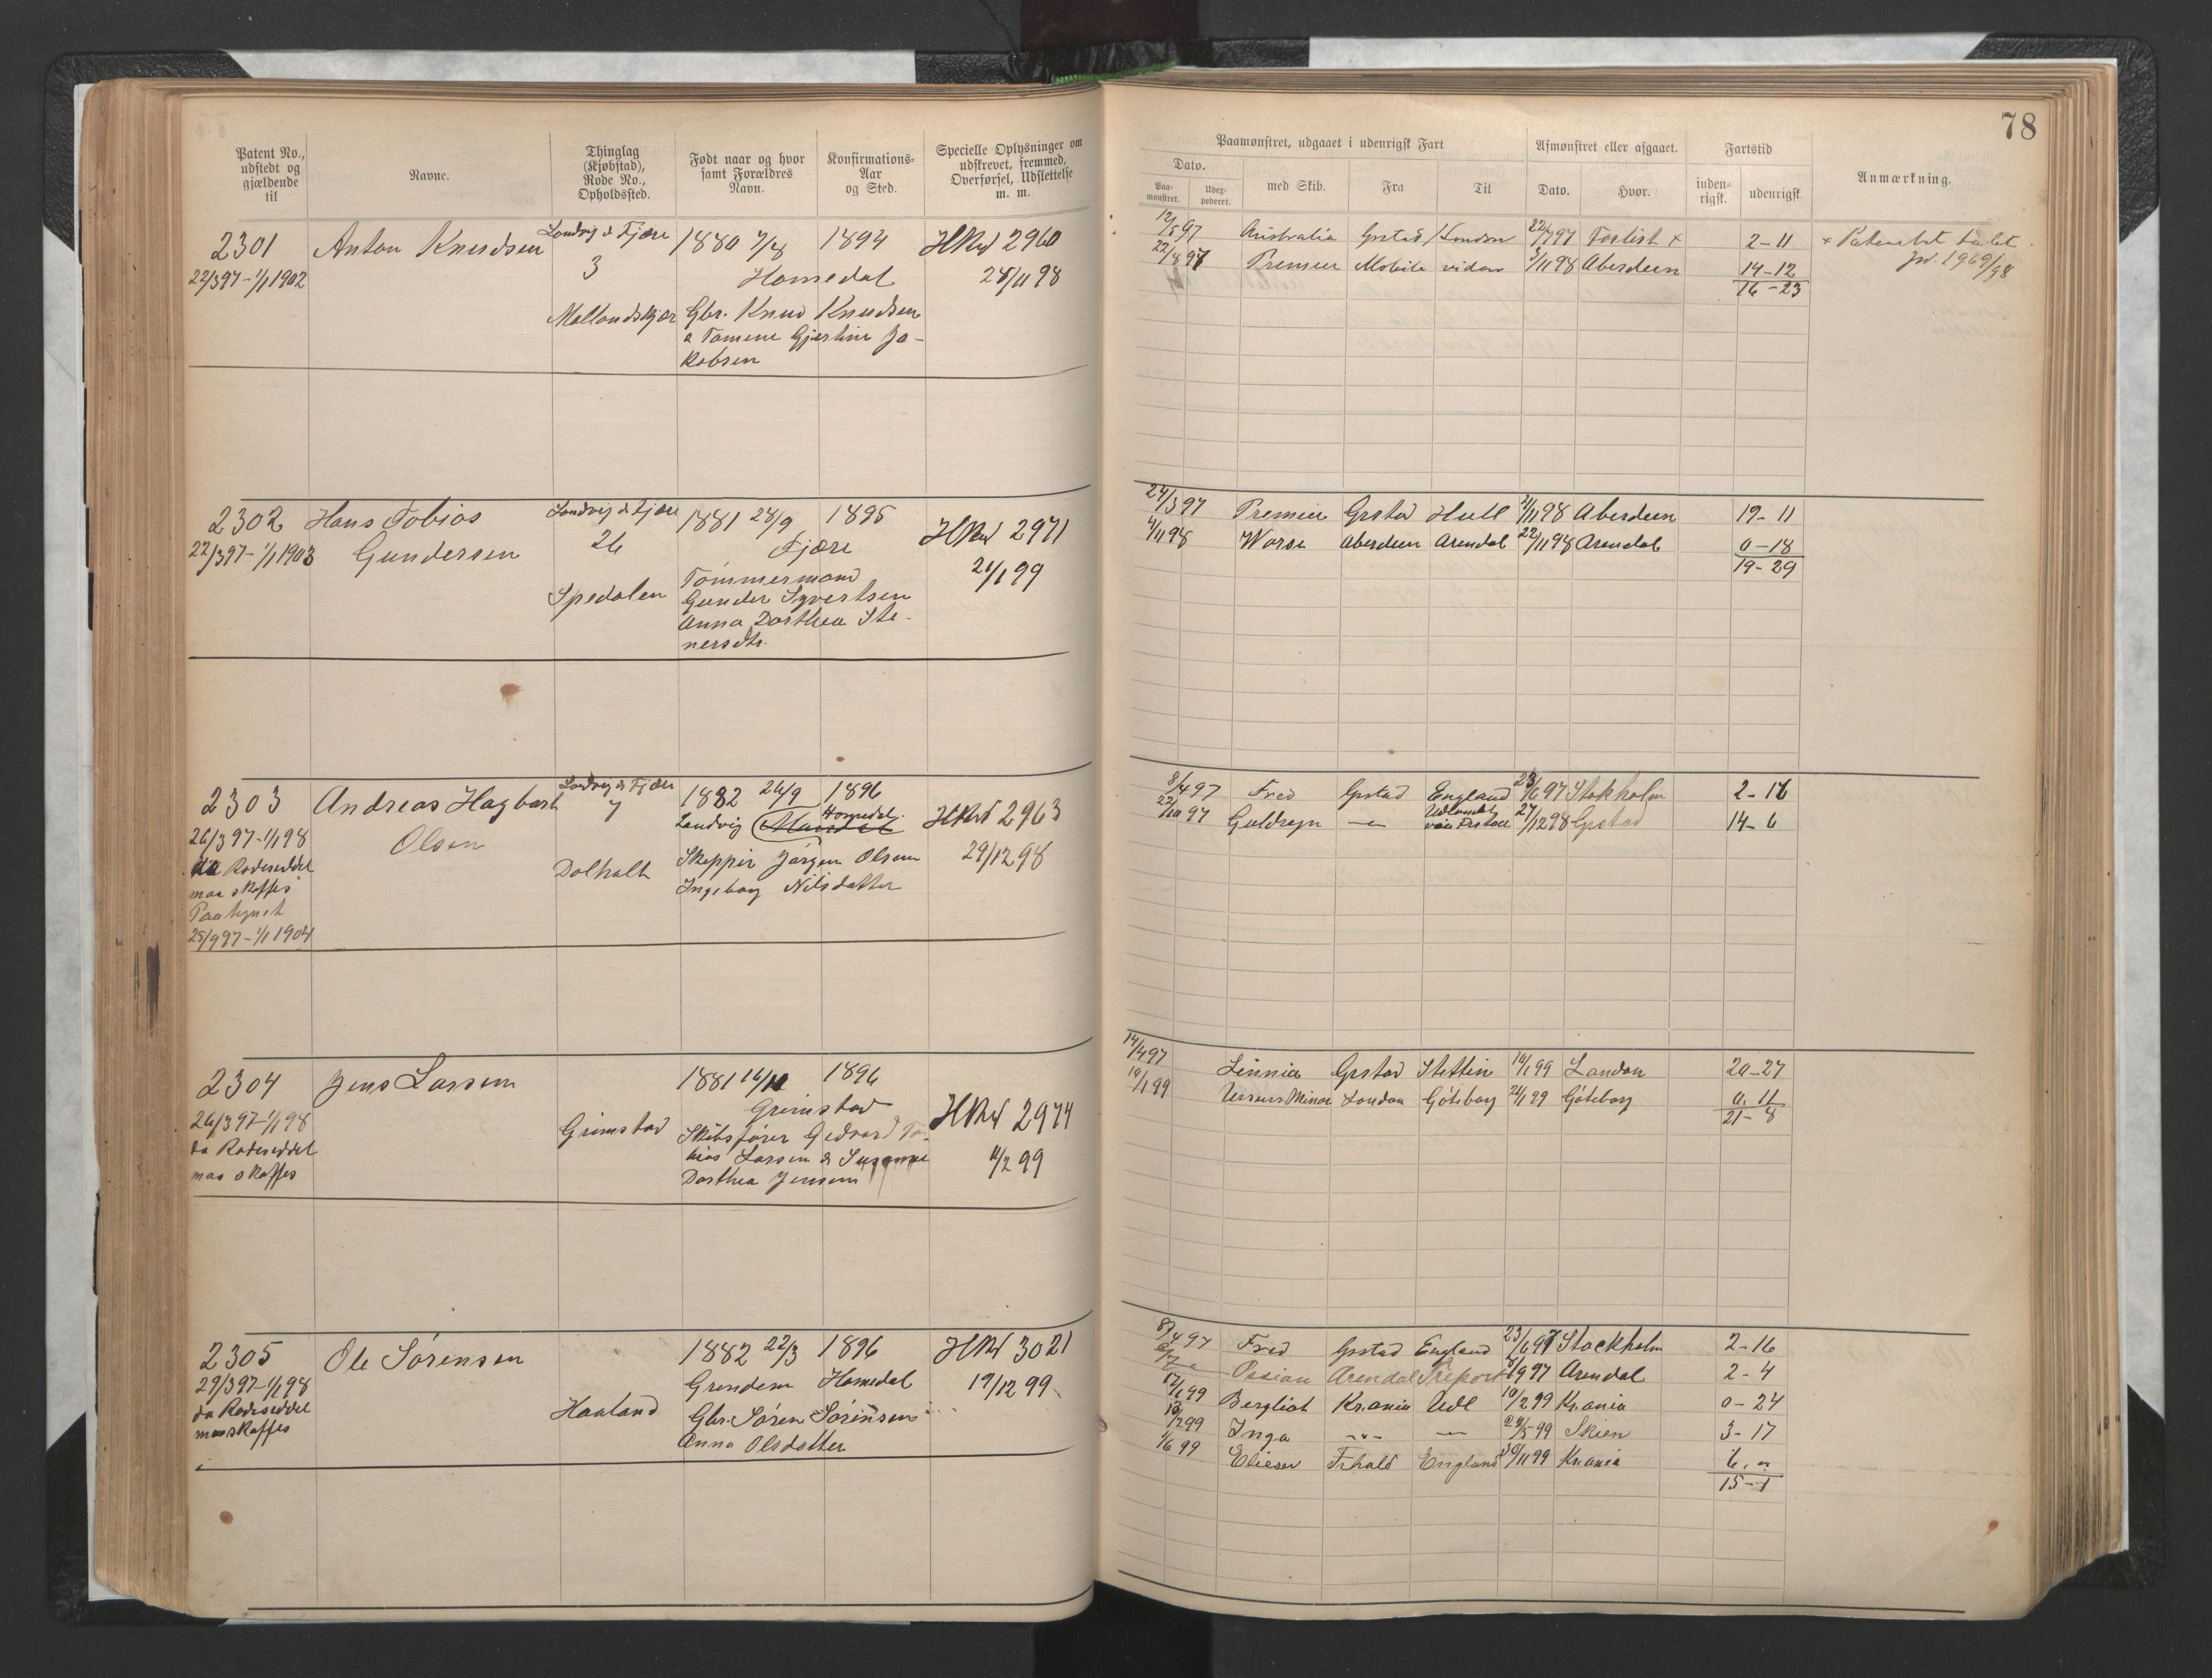 78
Patent No., udstedt og gjældende til
Navne.
Thinglag (Kjøbstad), Rode No., Opholdssted.
Født naar og hvor samt Forældres Navn.
Konfirmations-Aar og Sted.
Specielle Oplysninger om udskrevet, fremmed, Overførsel, Udslettelse m. m.
Paamønstret, udgaaet i udenrigsk Fart
Dato.
Paamønstret.
med Skib.
Fra
Til
Afmønstret eller afgaaet.
Dato.
Hvor.
Fartstid
indenrigsk.
udenrigsk.
Anmærkning.
2301 Anton Knudsen Landvig & Fjære 1880 7/8 1894 HRul 2960
22/3 97 - 1/1 1902 3 Homedal 28/11 98
Mollandskjær Gbr. Knud Knudsen
& Tomine Gjertine Ja-
kobsen
12/5 97 Australia Grstad London 22/7 97 Forlist x 2-11 x Patentet tabt.
22/8 97 Premier Mobile videre 3/11 98 Aberdeen 14-12 jr. 1969/98
16-23
2302 Hans Tobias Landvig & Fjære 1881 28/9 1895 HRul 2971
22/3 97 - 1/1 1903 Gundersen 26 Fjære 21/1 99
Spedalen Tømmermand
Gunder Syvertsen
Anna Dorthea Ste-
nersdtr.
24/3 97 Premier Grstad Hull 3/11 98 Aberdeen 19-11
4/11 98 Worse Aberdeen Arendal 22/11 98 Arendal 0-18
19-29
2303 Andreas Hagbart Landvig & Fjære 1882 26/9 1896 HRul 2963
26/3 97 - 1/1 98 Olsen 7 Landvig Homedal 29/12 98
da Rodeseddel Dolholt Skipper Jørgen Olsen
maa skaffes Ingeborg Nilsdatter
Paategnet
25/9 97 - 1/1 1904
8/4 97 Fred Grstad England 23/6 97 Stokholm 2-16
22/10 97 Guldregn - " - 27/12 98 Grstad 14-6
2304 Jens Larsen 1881 16/11 1896 HRul 2974
26/3 97 - 1/1 98 Grimstad Grimstad 11/2 99
da Rodeseddel Skibsfører Gedvard To-
maa skaffes bias Larsen & Susanne
Dorthea Jensen
14/4 97 Linnia Grstad Stettin 10/1 99 London 20-27
10/1 99 Ursus Minor London Göteborg 21/1 99 Göteborg 0.11
21-8
2305 Ole Sørensen 1882 22/3 1896 HRul 3021
29/3 97 - 1/1 98 Haaland Grendem Homedal 19/12 99
da Rodeseddel Gbr. Søren Sørensen
maa skaffes Anna Olsdatter
8/4 97 Fred Grstad England 23/6 97 Stockholm 2-16
Ossian Arendal Treport 9 97 Arendal 2-4
17/1 99 Bergliot Kr.ania Udl 10/2 99 Kr.ania 0-24
2 99 Inga - " - - " - 5 99 Skien 3-17
1/6 99 Elieser Frhald England 30/11 99 Kr.ania 6.0
15-1